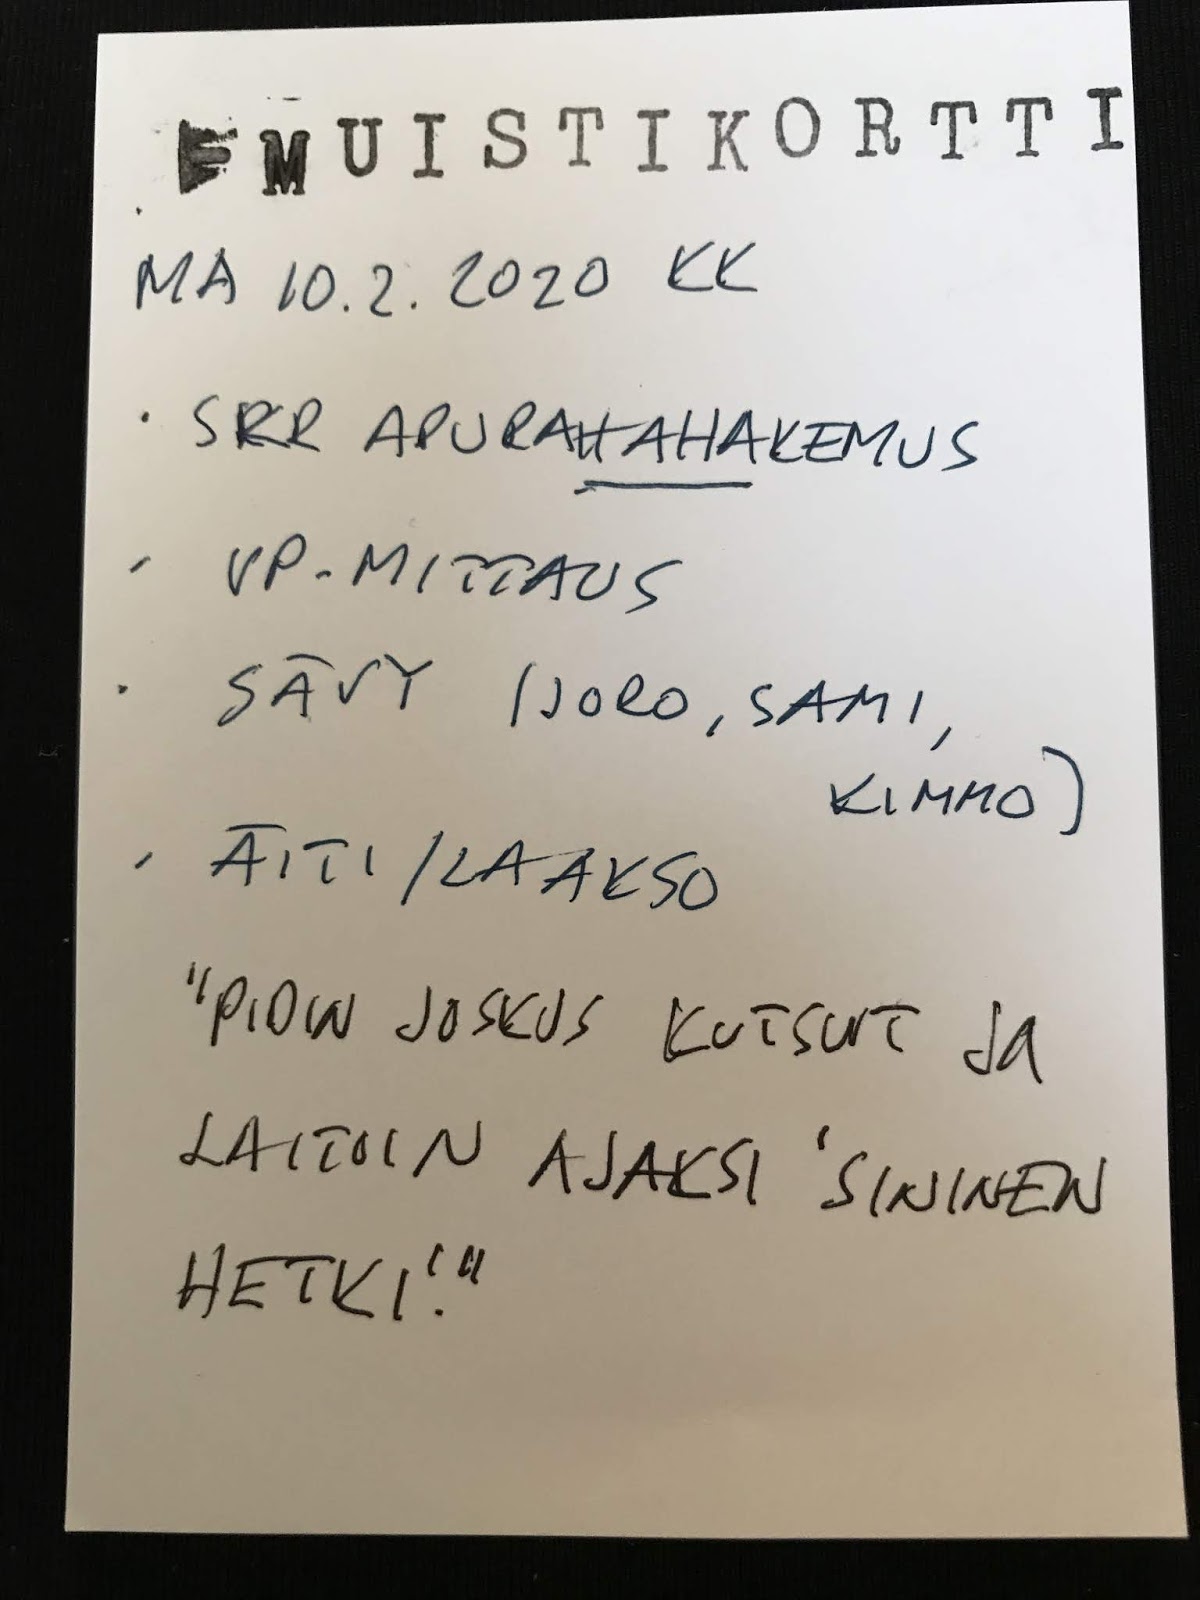 MUISTIKORTTI
MA 10.2.2020 KK
· SKR APURAHAHAKEMUS
- VP-MITTAUS
· SÄVY (JORO, SAMI,
KIMMO)
- ÄITI/LAAKSO
"PIDIN JOSKUS KUTSUT JA
LAITOIN AJAKSI 'SININEN
HETKI'."